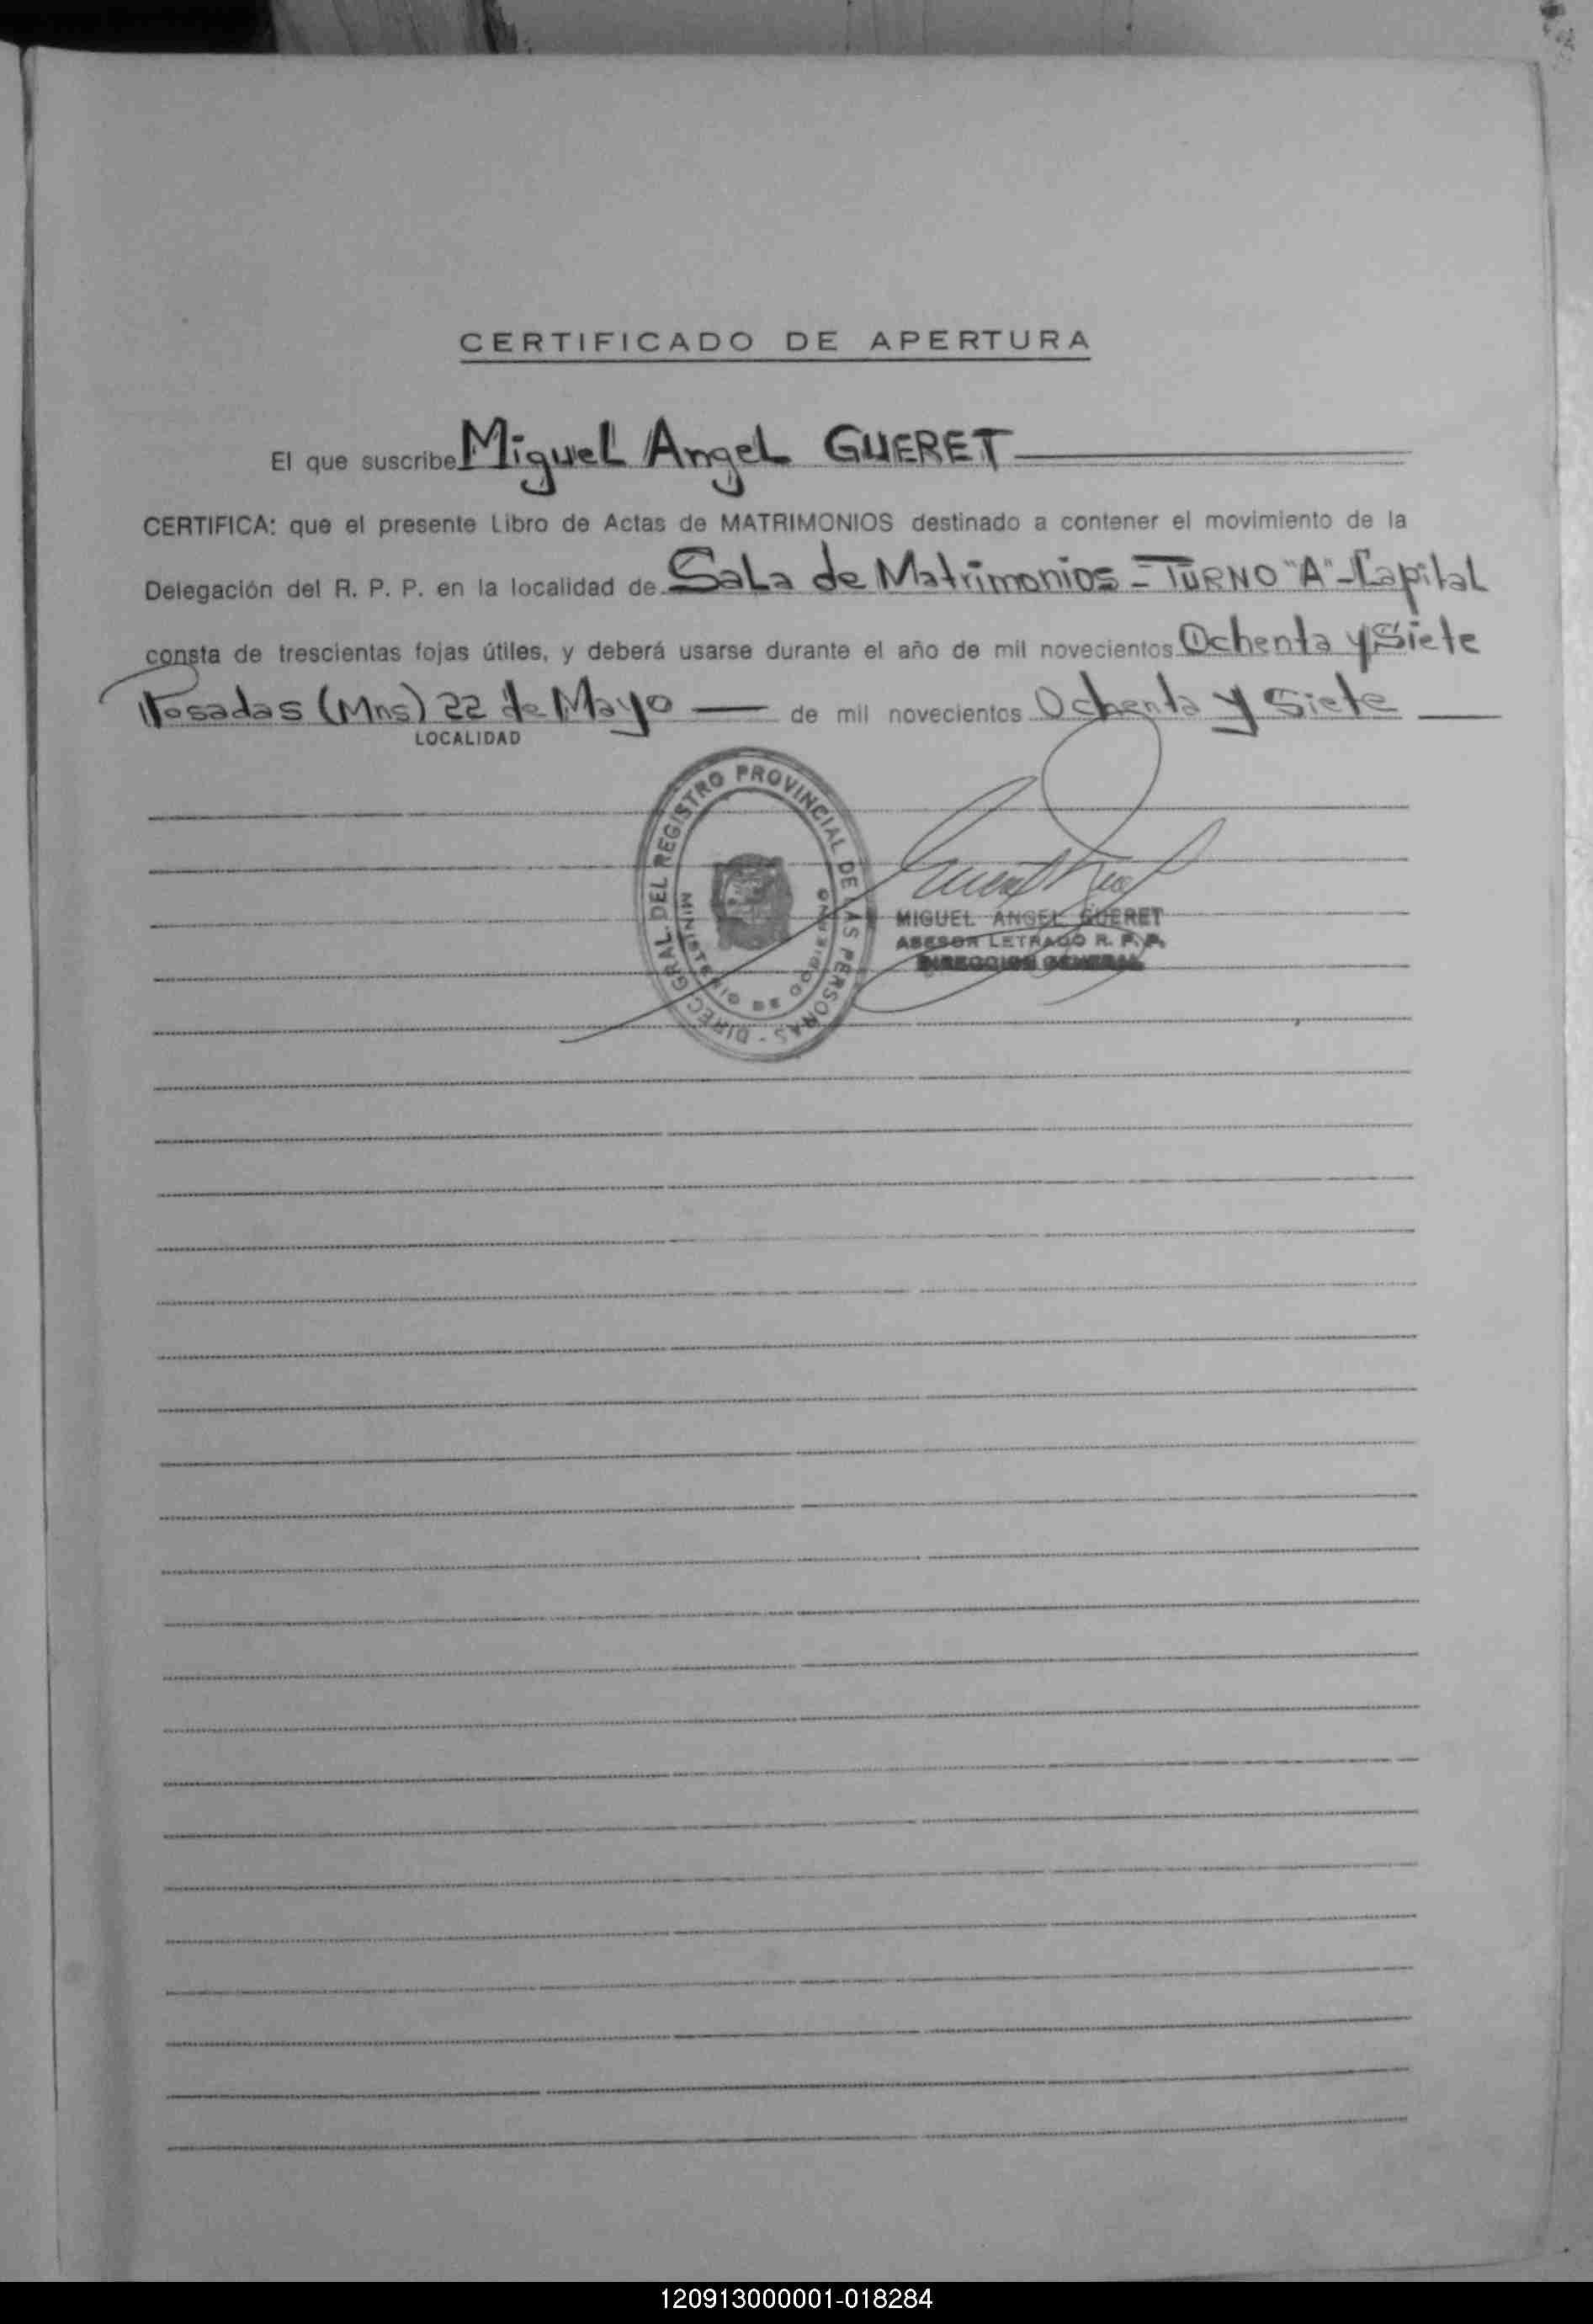 CERTIFICADO DE APERTURA
El que suscribe Miguel Angel GUERET
CERTIFICA: que el presente Libro de Actas de MATRIMONIOS destinado a contener el movimiento de la
Delegación del R. P. P. en la localidad de Sala de Matrimonios - TURNO "A" - Capital
consta de trescientas fojas útiles, y deberá usarse durante el año de mil novecientos Ochenta y Siete
Posadas (Mns) 22 de Mayo — de mil novecientos Ochenta y Siete
LOCALIDAD
DIREC. GRAL. DEL REGISTRO PROVINCIAL DE LAS PERSONAS -
MINISTERIO DE GOBIERNO
MIGUEL ANGEL GUERET
ASESOR LETRADO R. P. P.
DIRECCION GENERAL
120913000001-018284